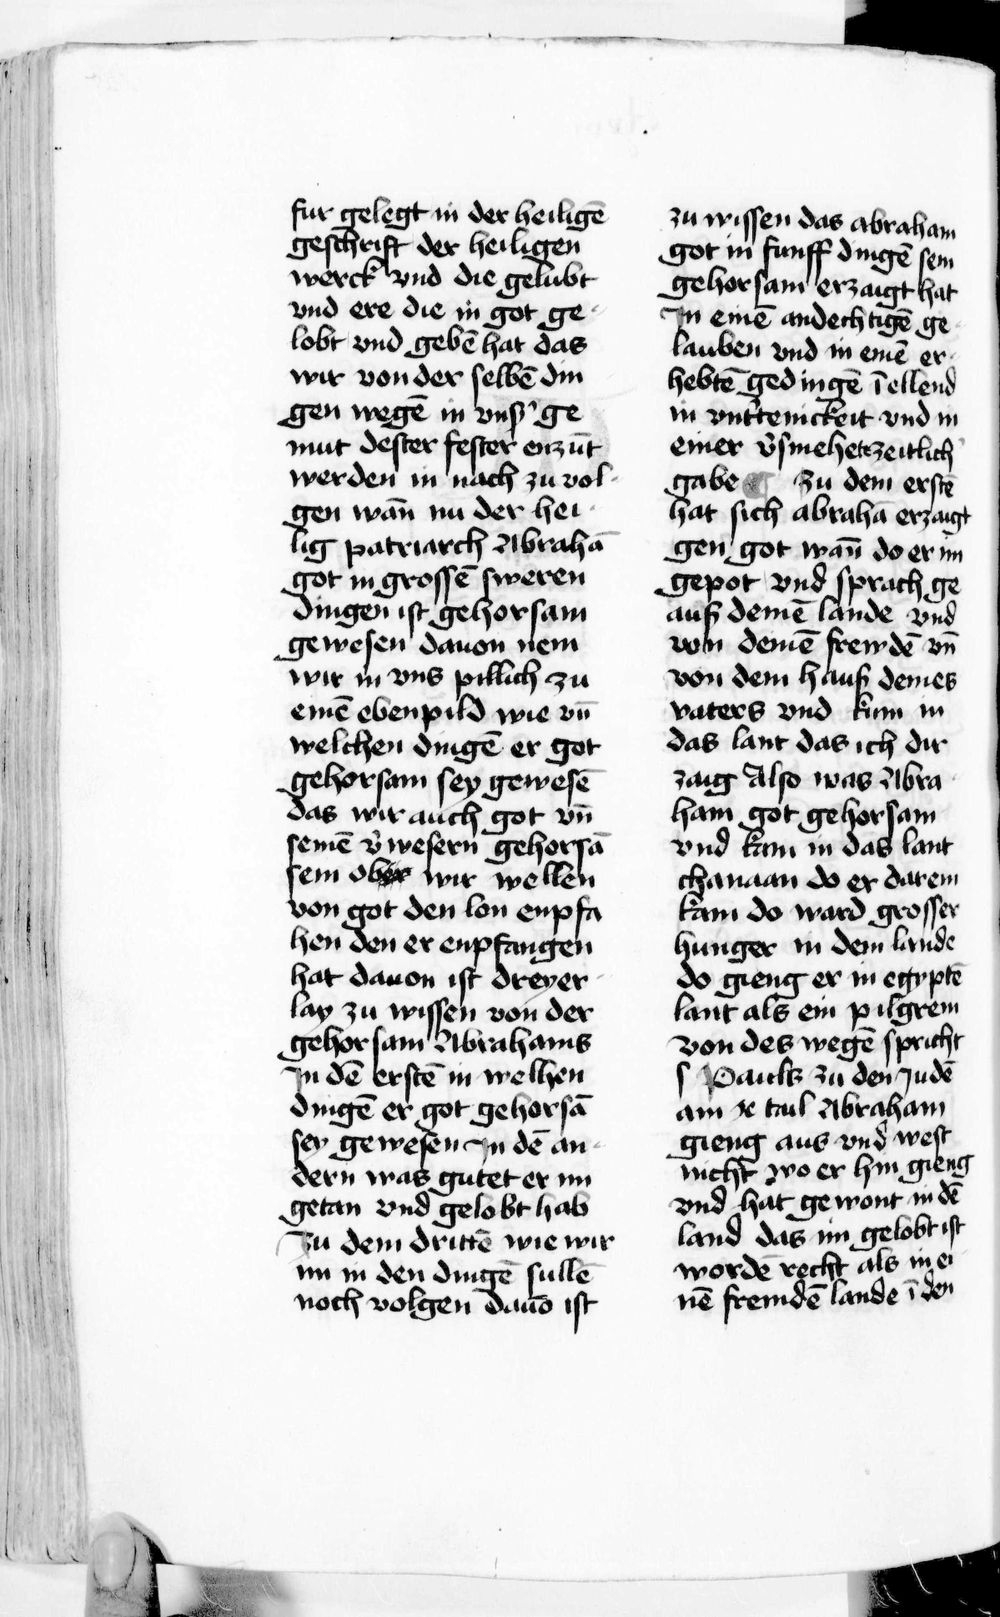 fur gelegt in der heiligē
geschrift der heiligen
werck vnd die gelubt
vnd ere die in got ge-
lobt vnd gebē hat das
wir von der selbē din
gen wegē in vnsʼ ge
mut dester fester enzūt
werden in nach zu vol-
gen wān nu der hei-
lig patriarch Abrahā
got in grossē sweren
dingen ist gehorsam
gewesen dauon nem
wir in vns pillich zu
einē ebenpild wie vn̄
welchen dingē er got
gehorsam sey gewesē
das wir auch got vn̄
seinē v̓wesern gehorsā
sein ober wir wellen
von got den lon enpfa
hen den er enpfangen
hat dauon ist dreyer-
lay zu wissen von der
gehorsam Abrahams
In dē erstē in welhen
dingē er got gehorsā
sey gewesen In dē an-
dern was gutet er im
getan vnd gelobt hab
Zu dem drittē wie wir
im in den dingē sullē
noch volgen dauō ist
zu wissen das abraham
got in funff dingē sein
gehorsam erzaigt hat
In einē andechtigē ge-
lauben vnd in einē er-
hebtē gedingē ī ellend
in vnt̓tenickeit vnd in
einer
gabe ¶ Zu dem erstē
hat sich abrahā erzaigt
gen got wān do er im
gepot vnd sprach ge
auß deinē lande vnd
von deinē frewdē vn̄
von dem hauß deines
vaters vnd kum in
das lant das ich dir
zaig Also was Abra-
ham got gehorsam
vnd kam in das lant
chanaan do er darein
kam do ward grosser
hunger in dem lande
do gieng er in egyptē
lant als ein pilgrem
von des wegē spricht
s Pauls zu den Judē
am xi tail Abraham
gieng aus vnd west
nicht wo er hin gieng
vnd hat gewont in dē
land das im gelobt ist
wordē recht als in ei
nē fremdē lande ī den